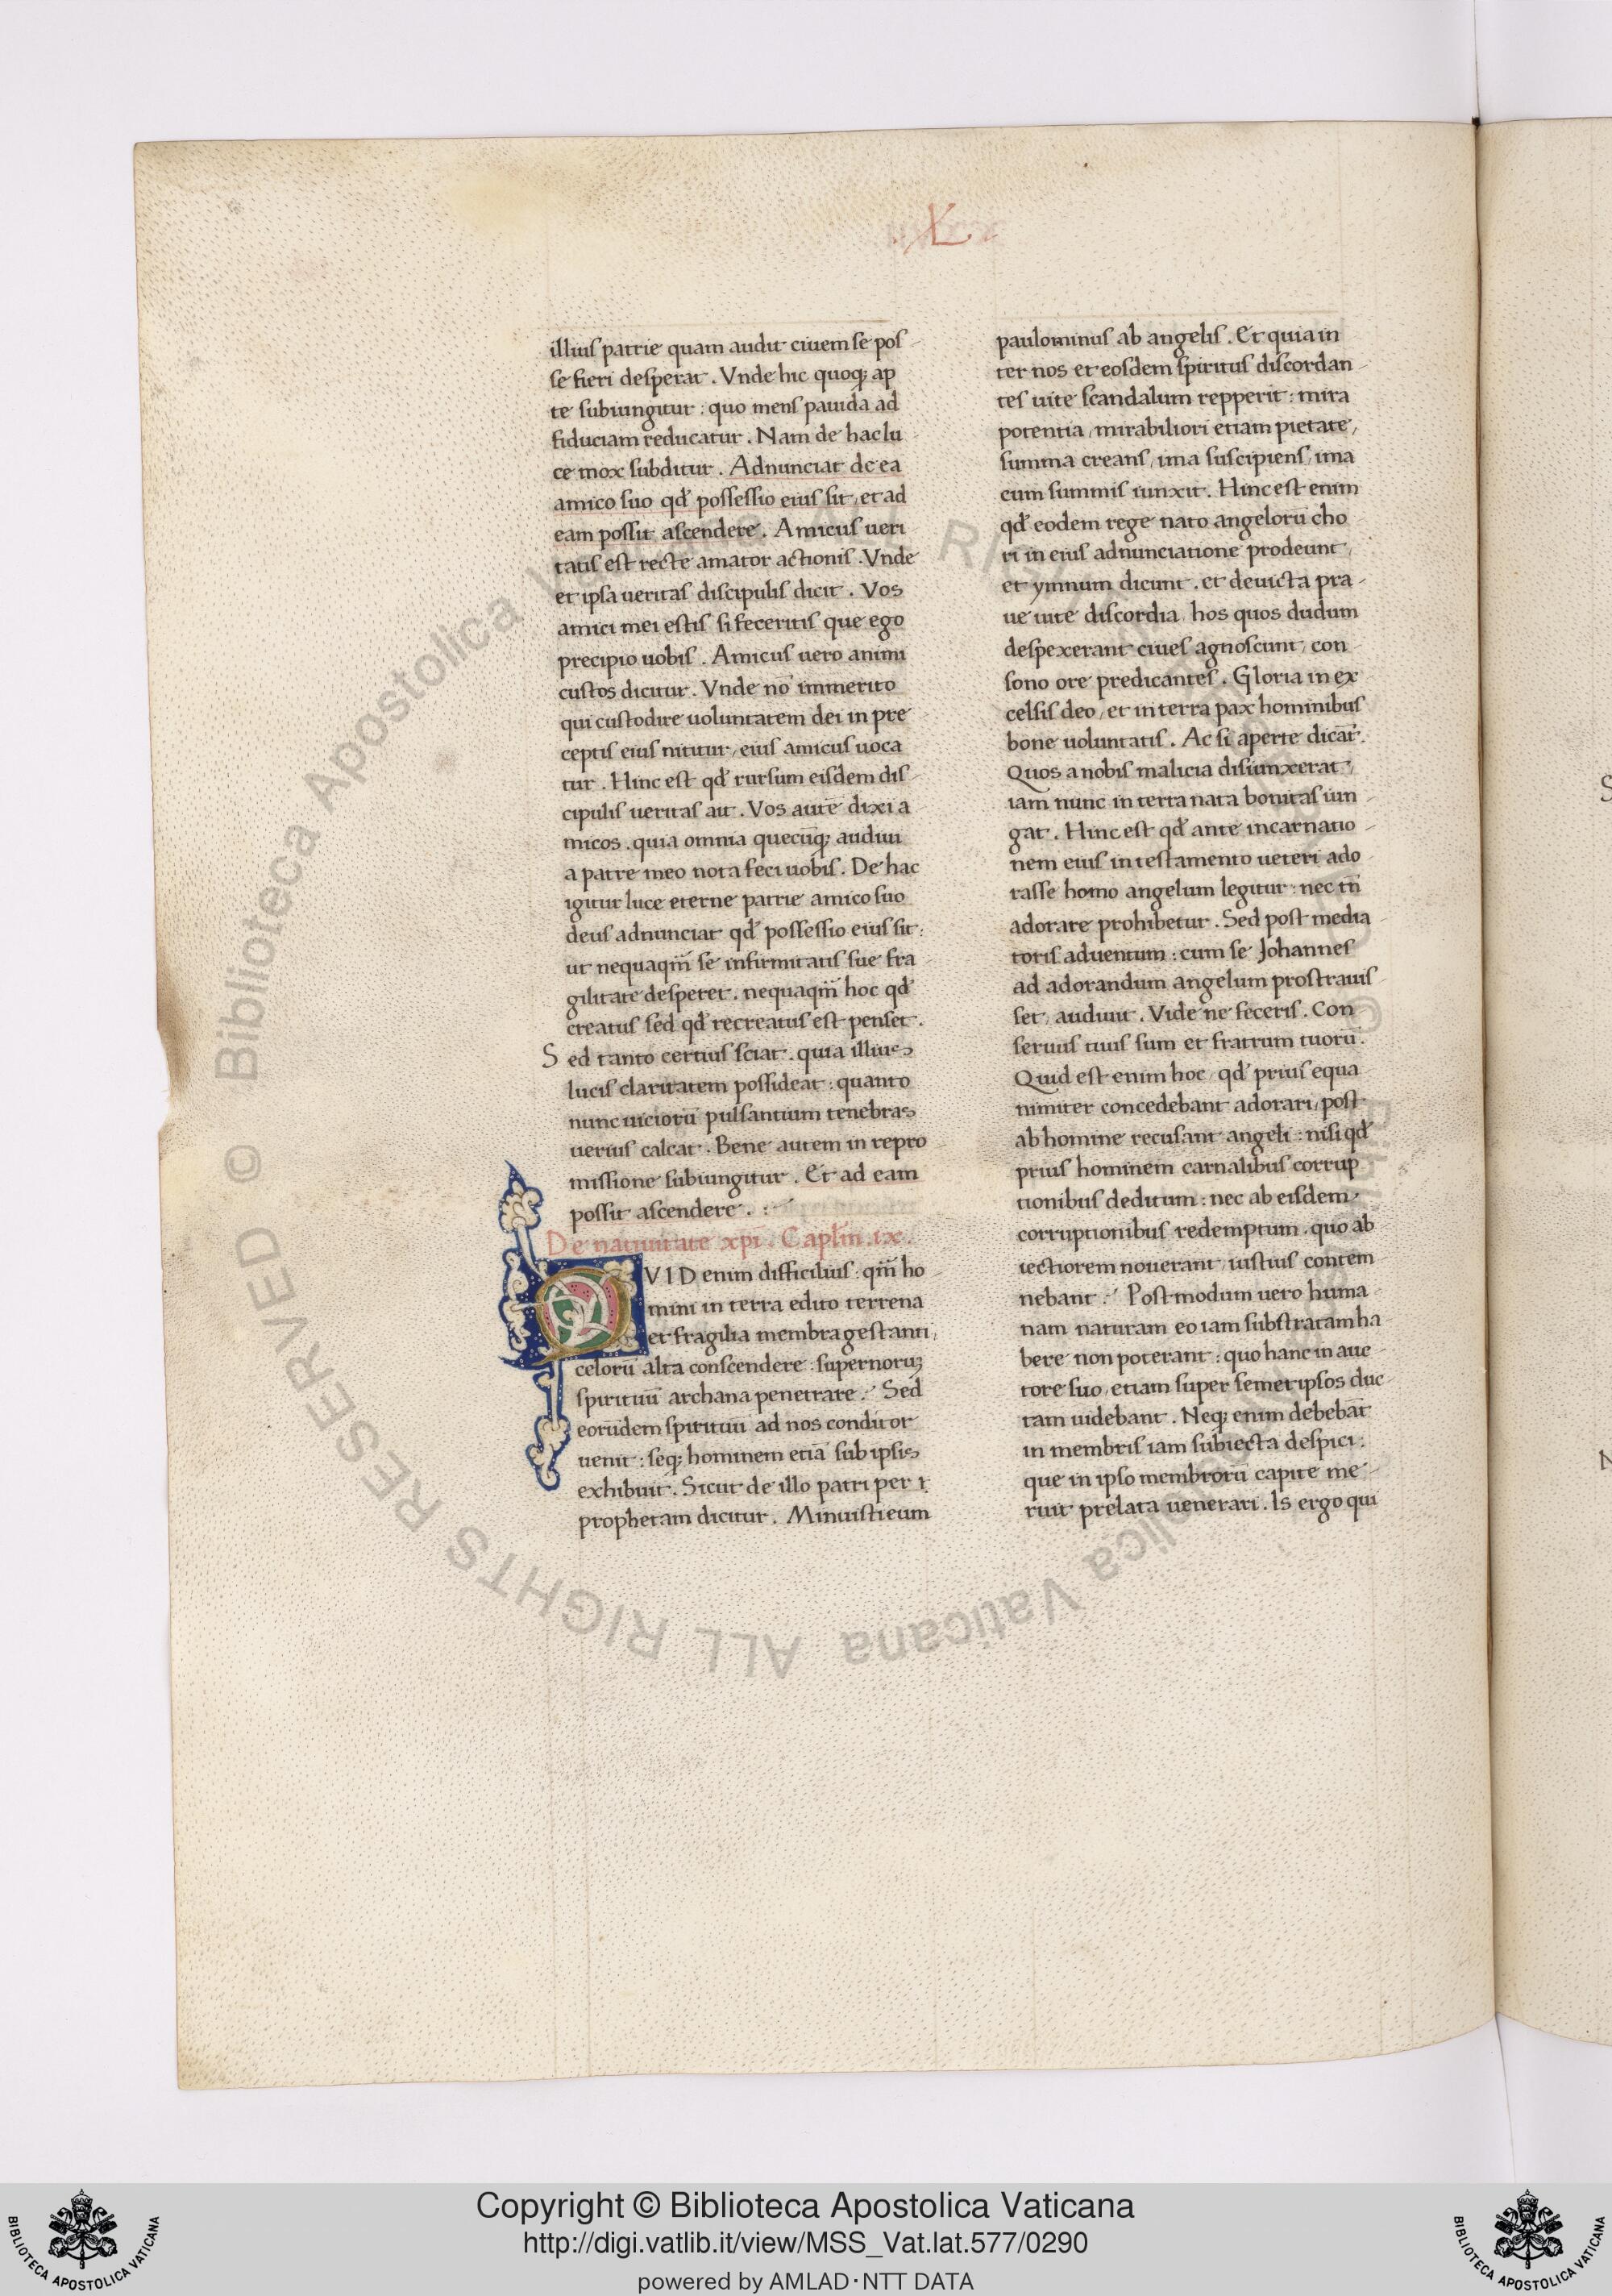 .XL.
illius patrie quam audit ciuem se pos-
se fieri desperat. Vnde hic quoq; ap
te subiungitur: quo mens pauida ad
fiduciam reducatur. Nam de hac lu-
ce mox subditur. Adnunciat de ea
amico suo qđ possessio eius sit, et ad
eam possit ascendere. Amicus ueri
tatis est recte amator actionis. Vnde
et ipsa ueritas discipulis dicit. Vos
amici mei estis si feceritis que ego
precipio uobis. Amicus uero animi
custos dicitur. Vnde nō immerito
qui custodire uoluntatem dei in pre
ceptis eius nititur, eius amicus uoca
tur. Hinc est qđ rursum eisdem dis-
cipulis ueritas ait. Vos autē dixi a
micos. quia omnia quecūq; audiui
a patre meo nota feci uobis. De hac
igitur luce eterne patrie amico suo
deus adnunciat qđ possessio eius sit:
ut nequaqm̄ se infirmitatis sue fra-
gilitate desperet. nequaqm̄ hoc qđ
creatus sed qđ recreatus est penset.
Sed tanto certius sciat. quia illius
lucis claritatem possideat: quanto
nunc uiciorū pulsantium tenebras
uerius calcat. Bene autem in repro
missione subiungitur. Et ad eam
possit ascendere.
De natiuitate xpi. Caplm̄.ix.
QVID enim difficilius: qm̄ ho-
mini in terra edito terrena
et fragilia membra gestanti,
celorū alta conscendere: supernoruʒ
spirituū archana penetrare. Sed
eorūdem spirituū ad nos conditor
uenit: seq; hominem etiā sub ipsis
exhibuit. Sicut de illo patri per
prophetam dicitur. Minuisti eum
paulominus ab angelis. Et quia in
ter nos et eosdem spiritus discordan-
tes uite scandalum repperit: mira
potentia, mirabiliori etiam pietate,
summa creans, ima suscipiens, ima
cum summis iunxit. Hinc est enim
qđ eodem rege nato angelorū cho
ri in eius adnunciatione prodeunt,
et ymnum dicunt. et deuicta pra-
ue uite discordia, hos quos dudum
despexerant ciues agnoscunt, con-
sono ore predicantes. Gloria in ex
celsis deo, et in terra pax hominibus
bone uoluntatis. Ac si aperte dicāt.
Quos a nobis malicia disiunxerat,
iam nunc in terra nata bonitas iun
gat. Hinc est qđ ante incarnatio-
nem eius in testamento ueteri ado-
rasse homo angelum legitur: nec tn̄
adorare prohibetur. Sed post media-
toris aduentum: cum se Johannes
ad adorandum angelum prostrauis
set, audiuit. Vide ne feceris. Con
seruus tuus sum et fratrum tuorū.
Quid est enim hoc, qđ prius equa
nimiter concedebant adorari, post
ab homine recusant angeli: nisi qđ
prius hominem carnalibus corrup
tionibus deditum: nec ab eisdem
corruptionibus redemptum. quo ab
iectiorem nouerant, iustius contem
nebant. Postmodum uero huma-
nam naturam eo iam substratam ha-
bere non poterant: quo hanc in auc-
tore suo, etiam super semetipsos duc-
tam uidebant. Neq; enim debebāt
in membris iam subiecta despici:
que in ipso membrorū capite me-
ruit prelata uenerari. Is ergo qui
S
N
© Biblioteca Apostolica Vaticana ALL RIGHTS RESERVED
Copyright © Biblioteca Apostolica Vaticana
http://digi.vatlib.it/view/MSS_Vat.lat.577/0290
powered by AMLAD·NTT DATA
BIBLIOTECA APOSTOLICA VATICANA
BIBLIOTECA APOSTOLICA VATICANA